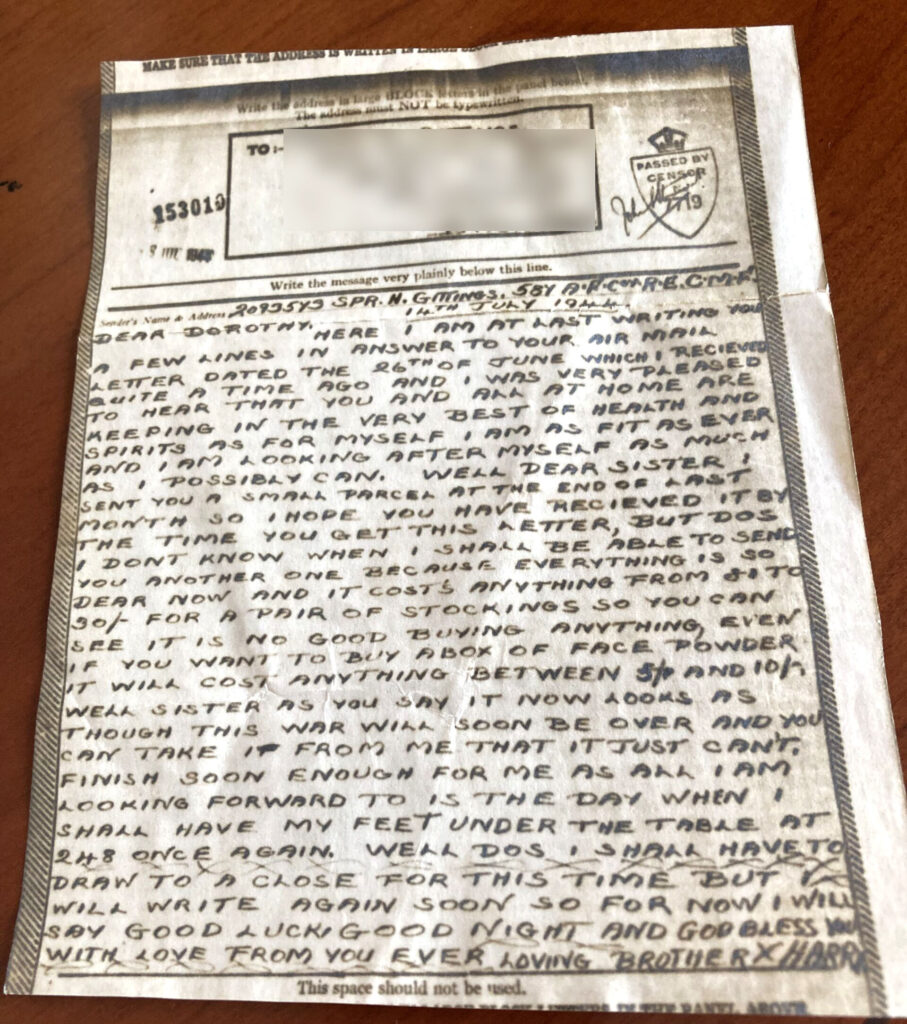 MAKE SURE THAT THE ADDRESS IS WRITTEN IN LARGE BLOCK
Write the address in large BLOCK letters in the panel below.
The address must NOT be typewritten.
TO:-
PASSED BY
CENSOR
153019
Write the message very plainly below this line.
Sender's Name & Address 2093543 SPR. H. GITTINGS. 581 A.H. Coy R.E. C.M.F.
14TH JULY 1944.
DEAR DOROTHY.
HERE I AM AT LAST WRITING YOU
A FEW LINES IN ANSWER TO YOUR AIR MAIL
LETTER DATED THE 26TH OF JUNE WHICH I RECIEVED
QUITE A TIME AGO AND I WAS VERY PLEASED
TO HEAR THAT YOU AND ALL AT HOME ARE
KEEPING IN THE VERY BEST OF HEALTH AND
SPIRITS AS FOR MYSELF I AM AS FIT AS EVER
AND I AM LOOKING AFTER MYSELF AS MUCH
AS I POSSIBLY CAN. WELL DEAR SISTER I
SENT YOU A SMALL PARCEL AT THE END OF LAST
MONTH SO I HOPE YOU HAVE RECIEVED IT BY
THE TIME YOU GET THIS LETTER, BUT DOS
I DONT KNOW WHEN I SHALL BE ABLE TO SEND
YOU ANOTHER ONE BECAUSE EVERYTHING IS SO
DEAR NOW AND IT COSTS ANYTHING FROM TO
30/- FOR A PAIR OF STOCKINGS SO YOU CAN
SEE IT IS NO GOOD BUYING ANYTHING, EVEN
IF YOU WANT TO BUY A BOX OF FACE POWDER
IT WILL COST ANYTHING BETWEEN 5/- AND 10/-.
WELL SISTER AS YOU SAY IT NOW LOOKS AS
THOUGH THIS WAR WILL SOON BE OVER AND YOU
CAN TAKE IT FROM ME THAT IT JUST CAN'T.
FINISH SOON ENOUGH FOR ME AS ALL I AM
LOOKING FORWARD TO IS THE DAY WHEN I
SHALL HAVE MY FEET UNDER THE TABLE AT
248 ONCE AGAIN. WELL DOS I SHALL HAVE TO
DRAW TO A CLOSE FOR THIS TIME BUT I
WILL WRITE AGAIN SOON SO FOR NOW I WILL
SAY GOOD LUCK GOOD NIGHT AND GOD BLESS YOU
WITH LOVE FROM YOU EVER LOVING BROTHER X HARRY
This space should not be used.
IN THE PANEL ABOVE